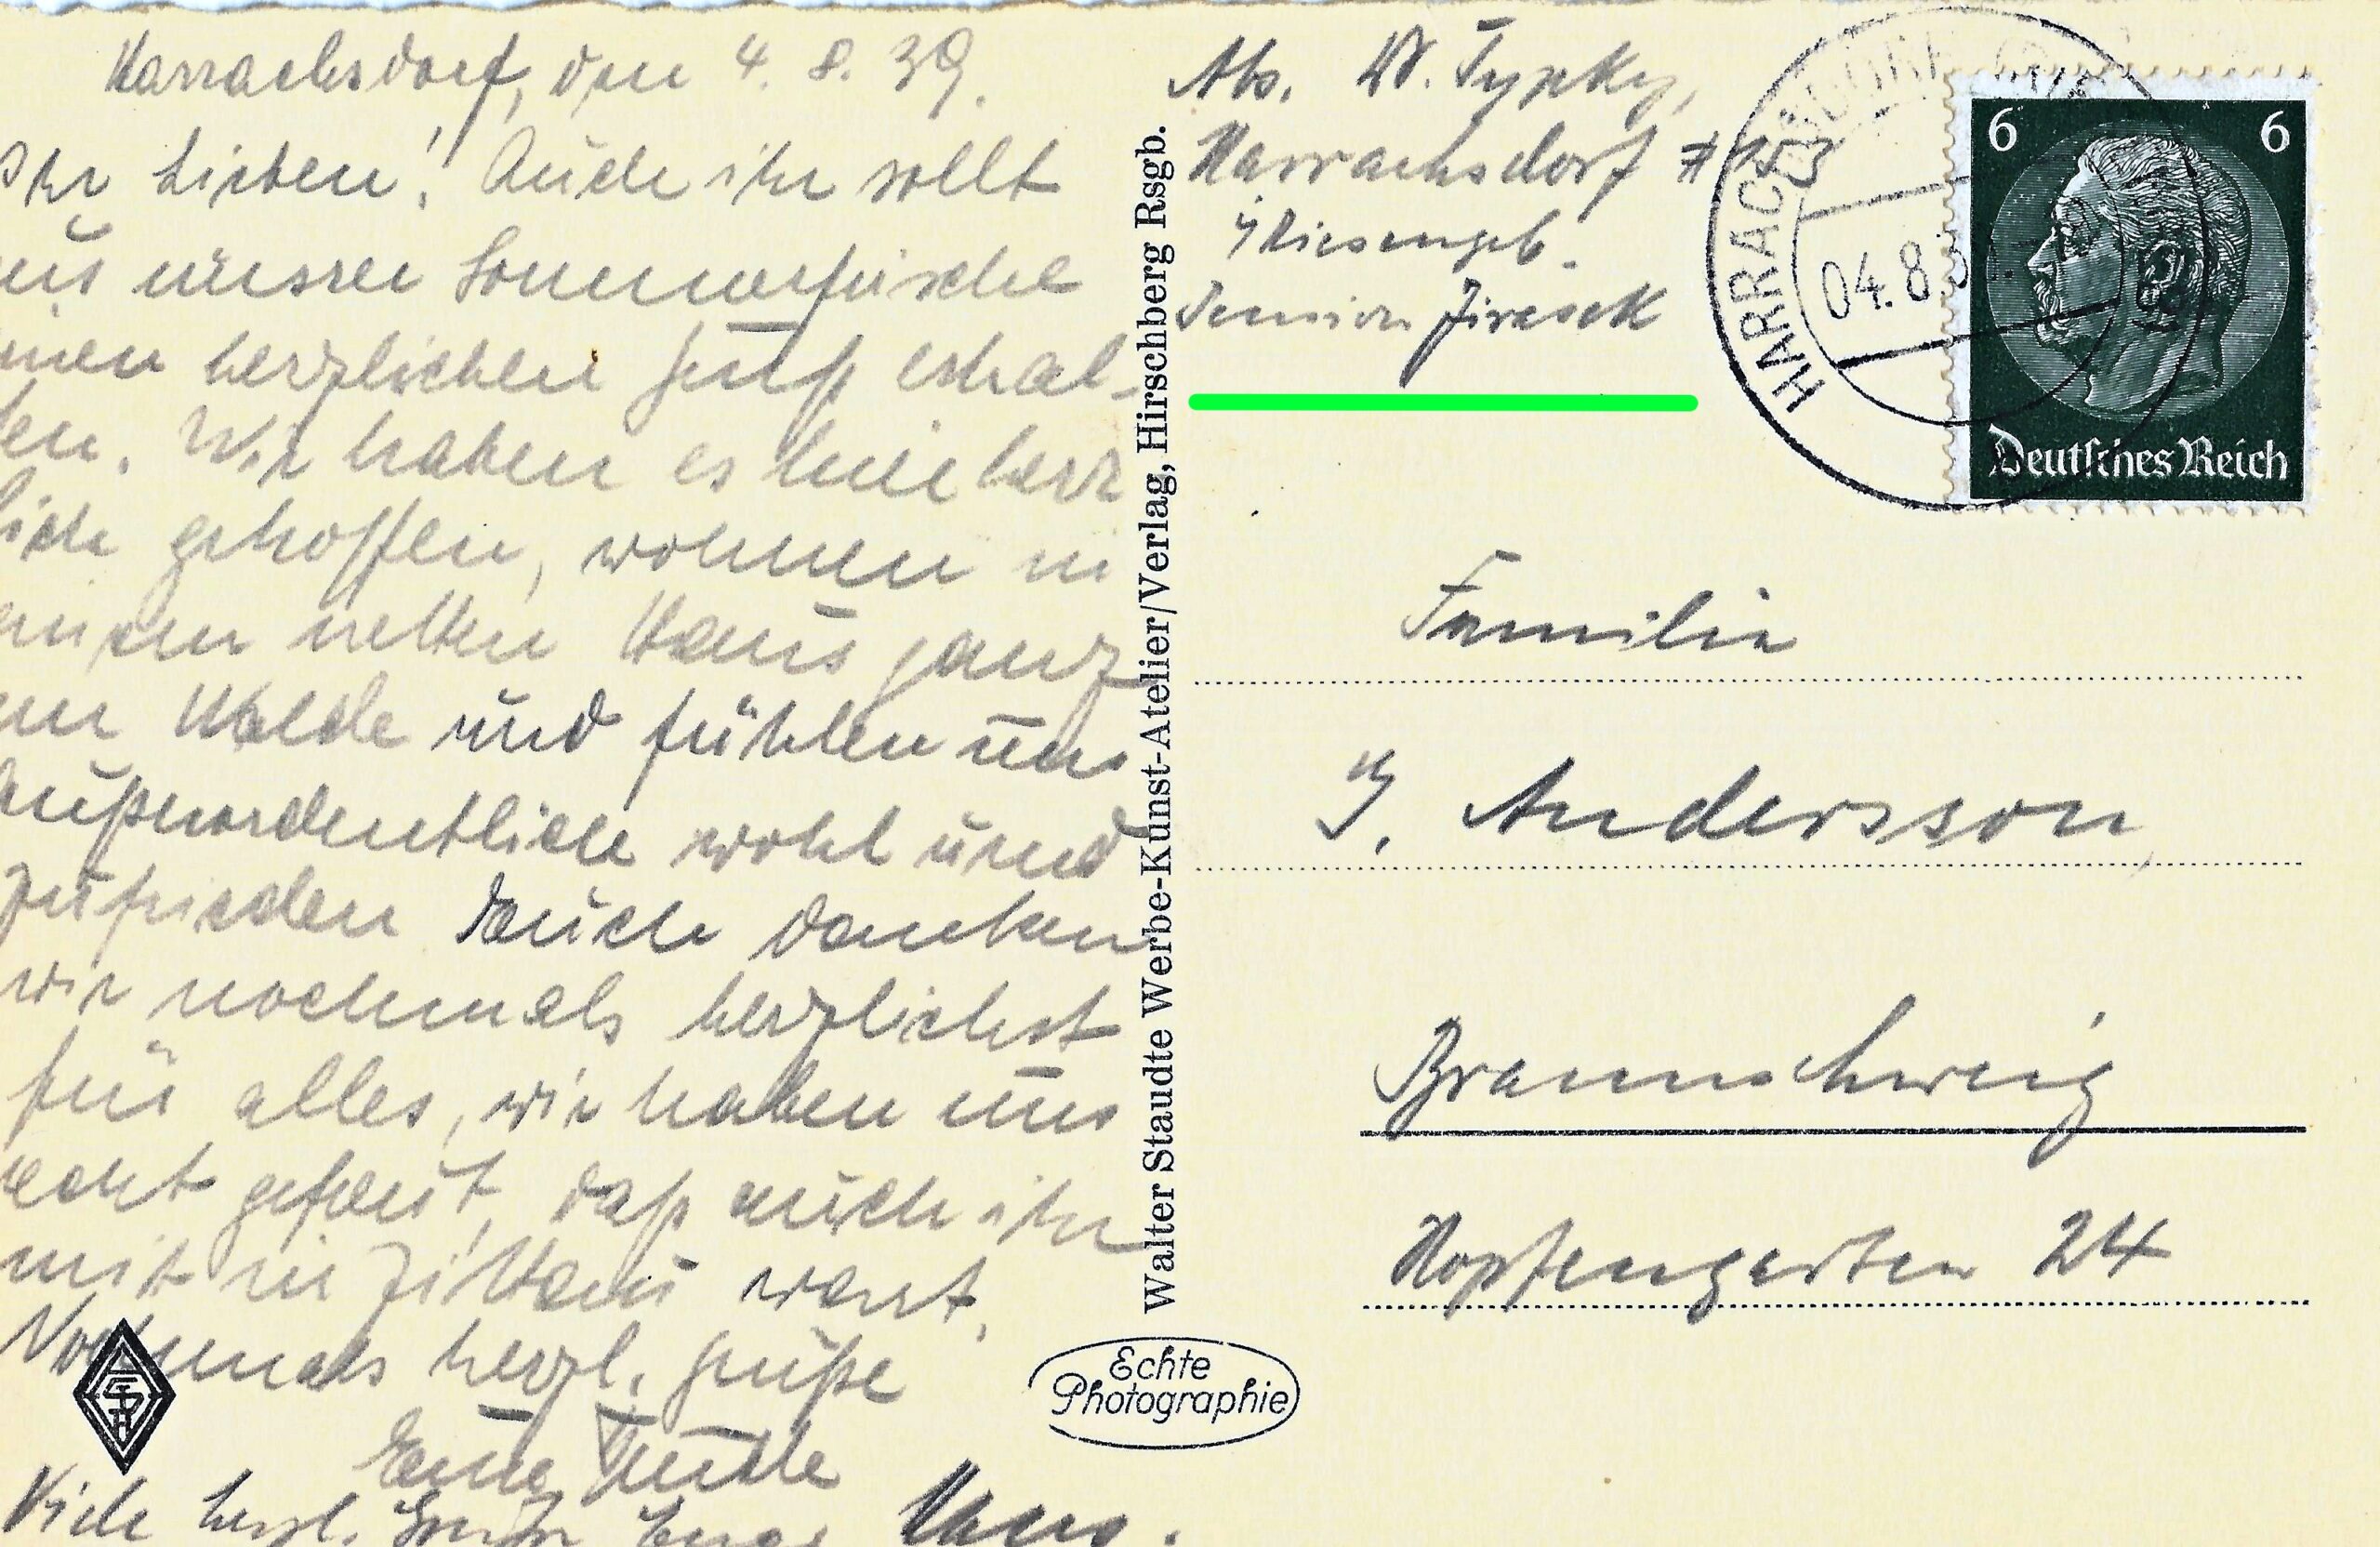 Harrachsdorf, den 4. 8. 39.
Ihr Lieben! Auch ihr sollt
aus unsrer Sommerfrische
einen herzlichen Gruß erhal-
ten. Wir haben es hier herr
lich getroffen, wohnen in
einem netten Haus ganz
am Walde und fühlen uns
außerordentlich wohl und
zufrieden. Auch danken
wir nochmals herzlichst
für alles, wir haben uns
recht gefreut, daß auch ihr
mit in Zittau wart.
Nochmals herzl. Grüße
Eure Trudle
Viele herzl. Grüße Euer Hans.
Walter Staudte Werbe-Kunst-Atelier/Verlag, Hirschberg Rsgb.
Echte
Photographie
Abs. W. Typky,
Harrachsdorf # 153
i/Riesengeb.
Pension Jirasek
HARRACHSDORF
04.8.39
6 6
Deutsches Reich
Familie
J. Andersson,
Braunschweig
Hopfengarten 24